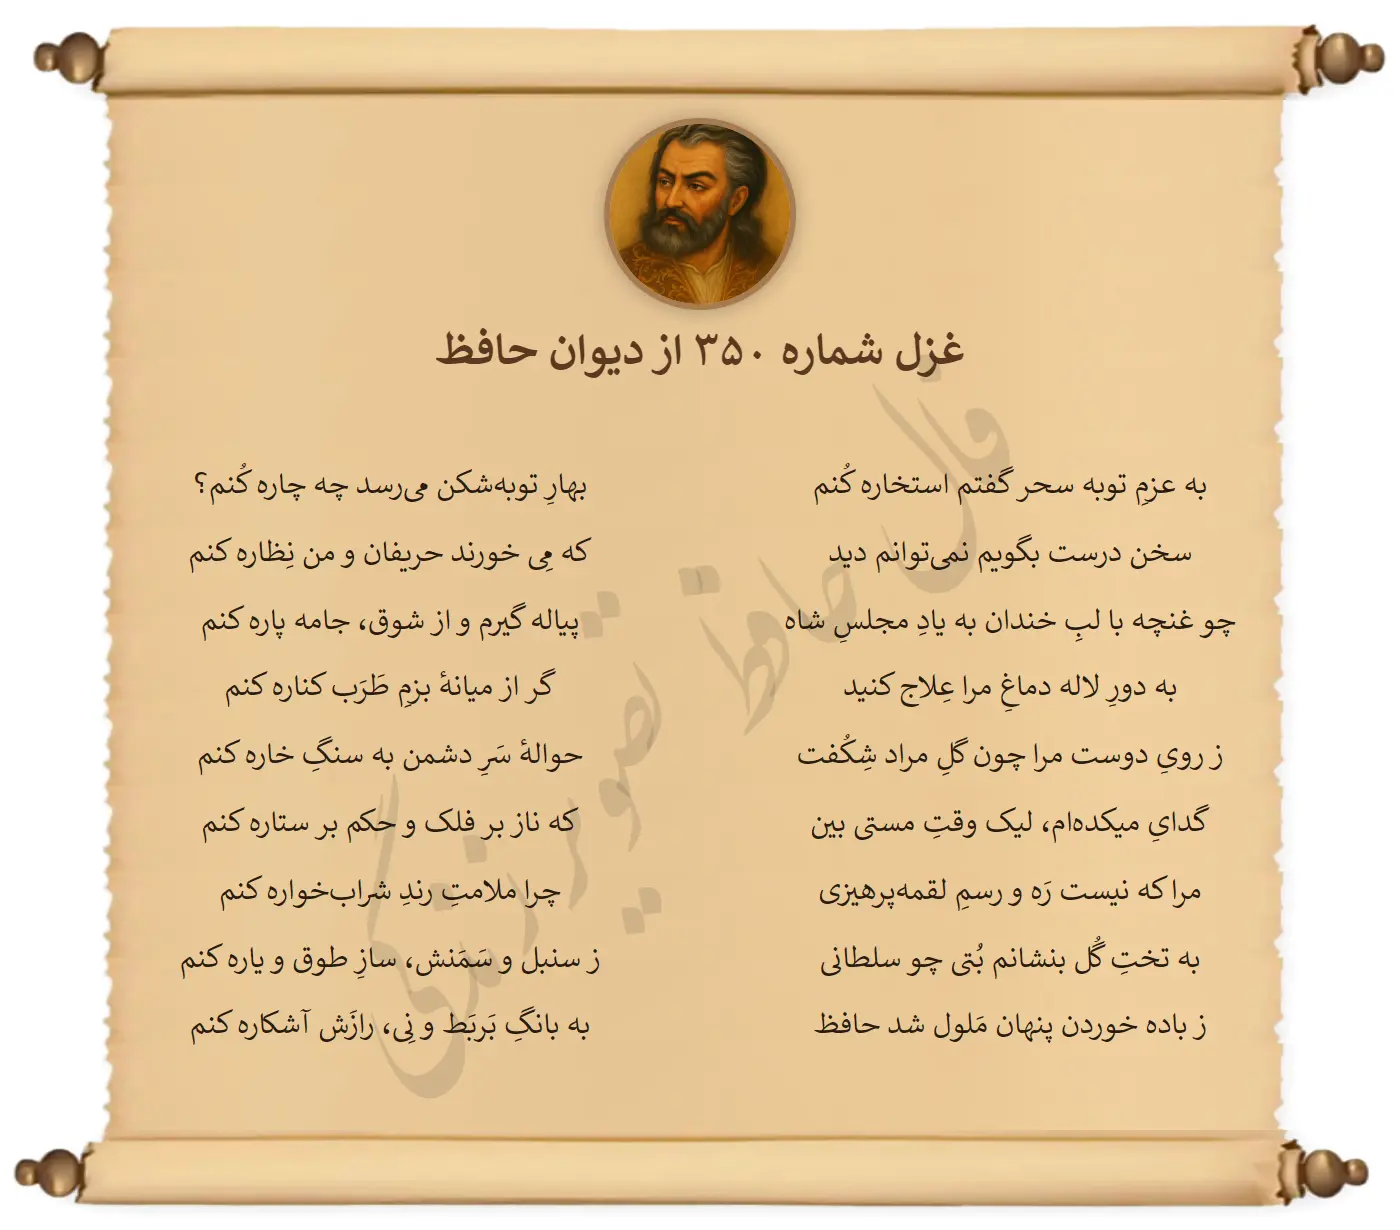 غزل شماره ۳۵۰ از دیوان حافظ
به عزمِ توبه سحر گفتم استخاره کُنم
بهارِ توبه‌شکن می‌رسد چه چاره کُنم؟
سخن درست بگویم نمی‌توانم دید
که مِی خورند حریفان و من نِظاره کنم
چو غنچه با لبِ خندان به یادِ مجلسِ شاه
پیاله گیرم و از شوق، جامه پاره کنم
به دورِ لاله دماغِ مرا عِلاج کنید
گر از میانهٔ بزمِ طَرَب کناره کنم
ز رویِ دوست مرا چون گلِ مراد شِکُفت
حوالهٔ سَرِ دشمن به سنگِ خاره کنم
گدایِ میکده‌ام، لیک وقتِ مستی بین
که ناز بر فلک و حکم بر ستاره کنم
مرا که نیست رَه و رسمِ لقمه‌پرهیزی
چرا ملامتِ رندِ شراب‌خواره کنم
به تختِ گُل بنشانم بُتی چو سلطانی
ز سنبل و سَمَنش، سازِ طوق و یاره کنم
ز باده خوردن پنهان مَلول شد حافظ
به بانگِ بَربَط و نِی، رازَش آشکاره کنم
فال حافظ تصویر زندگی